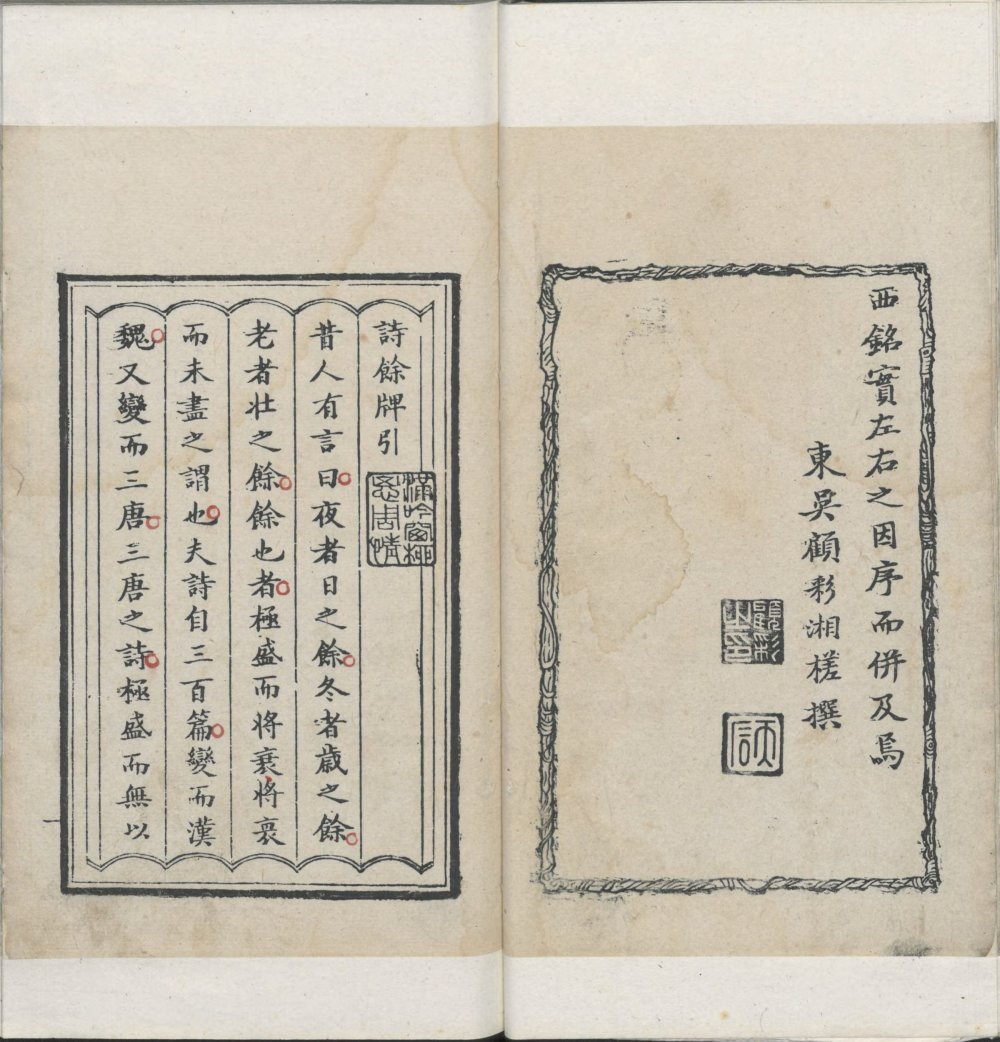 西銘實左右之因序而併及焉
東吳顧彩湘槎撰
顧彩之印
詩餘牌引
昔人有言曰夜者日之餘冬者歲之餘
老者壯之餘餘也者極盛而将衰将衰
而未盡之謂也夫詩自三百篇變而漢
魏又變而三唐三唐之詩極盛而無以